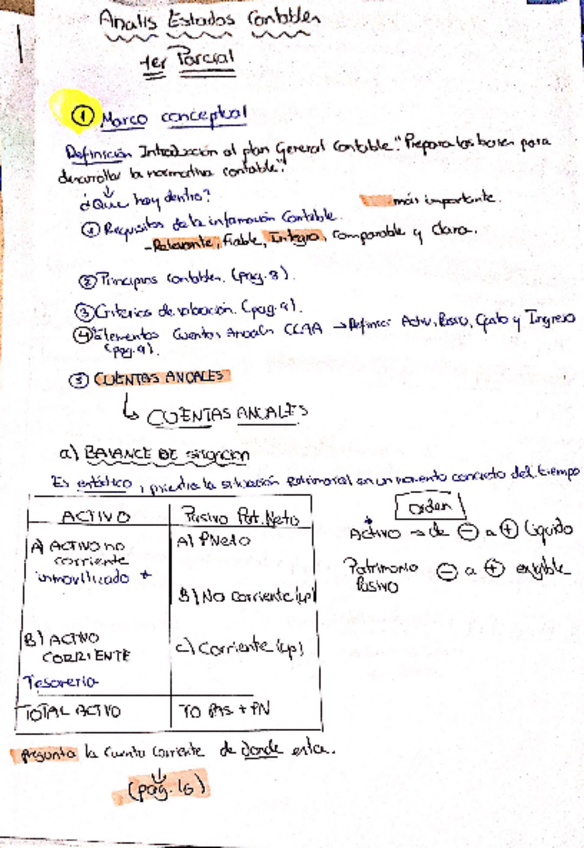 Analis Estados Contables
1er Parcial
① Marco conceptual
Definición Introducción al plan General Contable. "Prepara las bases para
desarrollar la normativa contable."
↓
¿Que hay dentro?
más importante.
① Requisitos de la información Contable.
- Relevante, fiable, Integra, comparable y clara.
② Principios contables. (pag. 8).
③ Criterios de valoración. (pag. 9).
④ Elementos Cuentas Anuales CCAA → Define: Activ, Pasivo, Gasto y Ingreso
(pag. 9).
⑤ CUENTAS ANUALES
↳ CUENTAS ANUALES
a) BALANCE DE situación
Es estático, la situación patrimonial en un momento concreto del tiempo
Orden
ACTIVO Pasivo Pat. Neto
Activo → de ⊖ a ⊕ líquido
A) ACTIVO no corriente A) PNeto
inmovilizado +
Patrimonio Pasivo ⊖ a ⊕ exigible
B) No corriente (lp)
B) ACTIVO CORRIENTE C) Corriente (cp)
Tesorería
TOTAL ACTIVO TO PAS + PN
Pregunta la cuenta corriente de donde esta.
↓
(pag. 16)